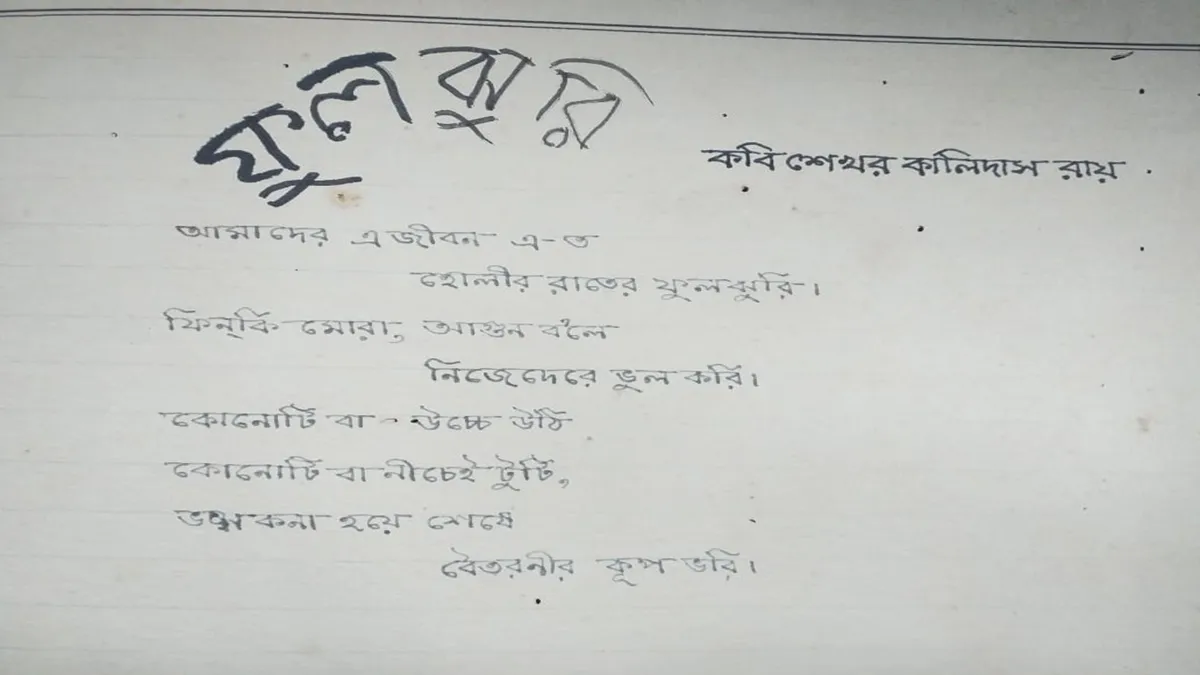 ফুলঝুরি
কবিশেখর কালিদাস রায়
আমাদের এ জীবন এ-ত
হোলীর রাতের ফুলঝুরি।
ফিন্‌কি মোরা, আগুন ব'লে
নিজেদেরে ভুল করি।
কোনোটি বা - উচ্চে উঠি
কোনোটি বা নীচেই টুটি,
ভস্ম কনা হয়ে শেষে
বৈতরনীর কূপ ভরি।